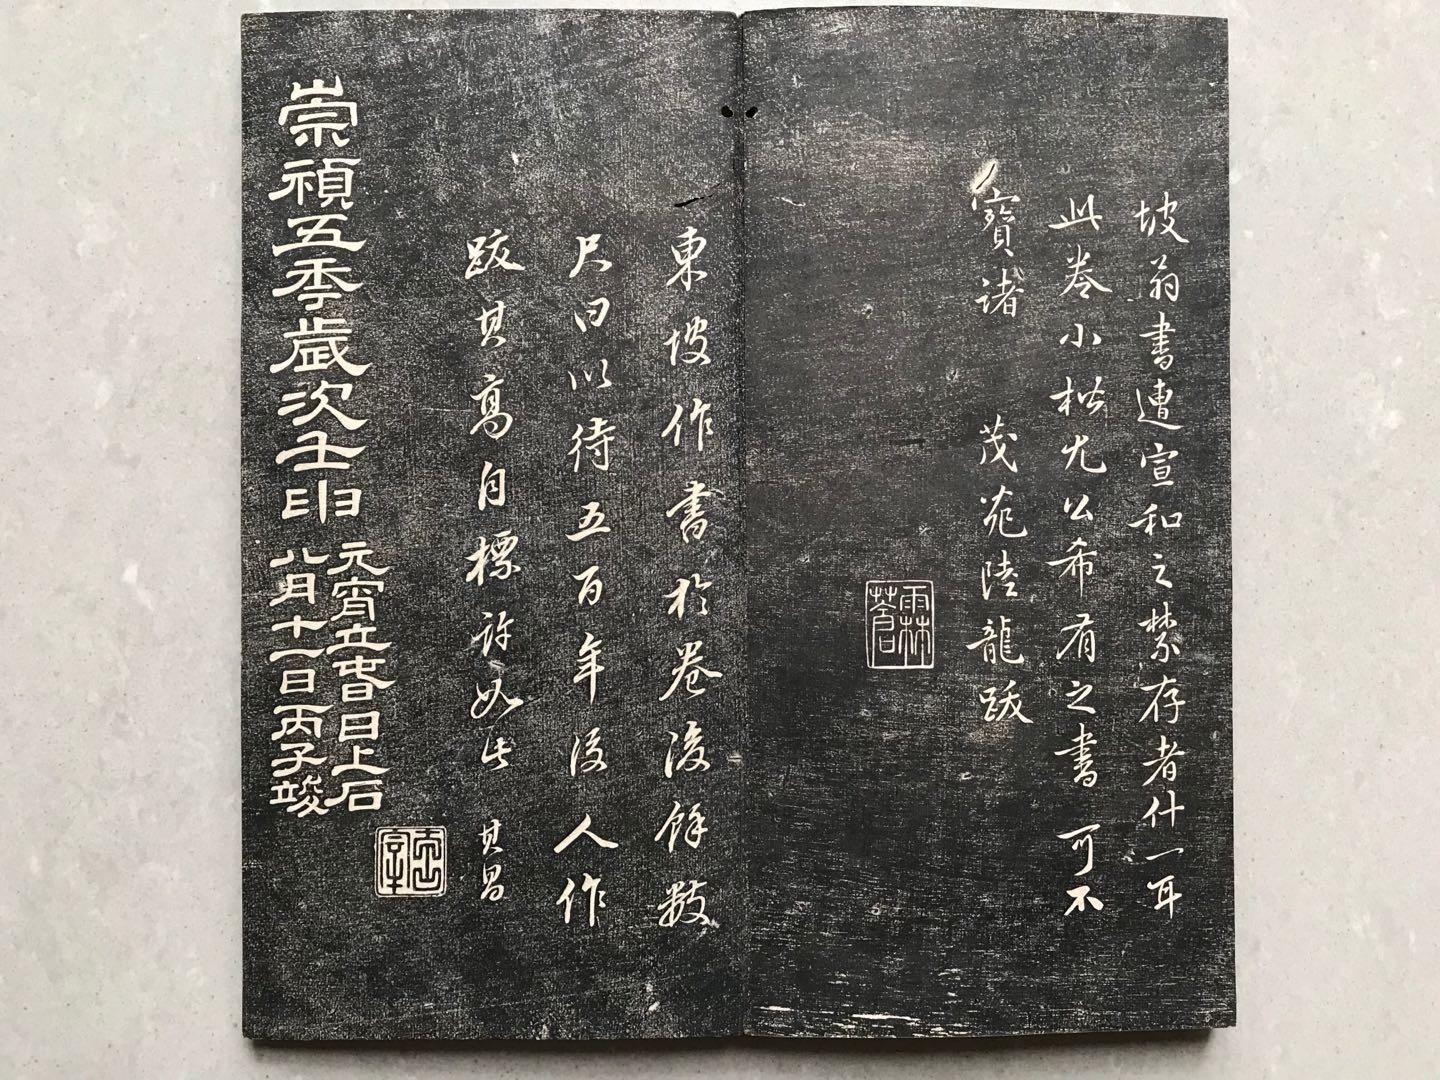 坡翁書遭宣和之禁存者什一耳
此卷小楷尤公希有之書可不
寶諸 茂苑陸龍跋
東坡作書於卷後餘數
尺曰以待五百年後人作
跋其高自標許如此 其昌
崇禎五季歲次壬申
元宵立春日上石
八月十一日丙子竣